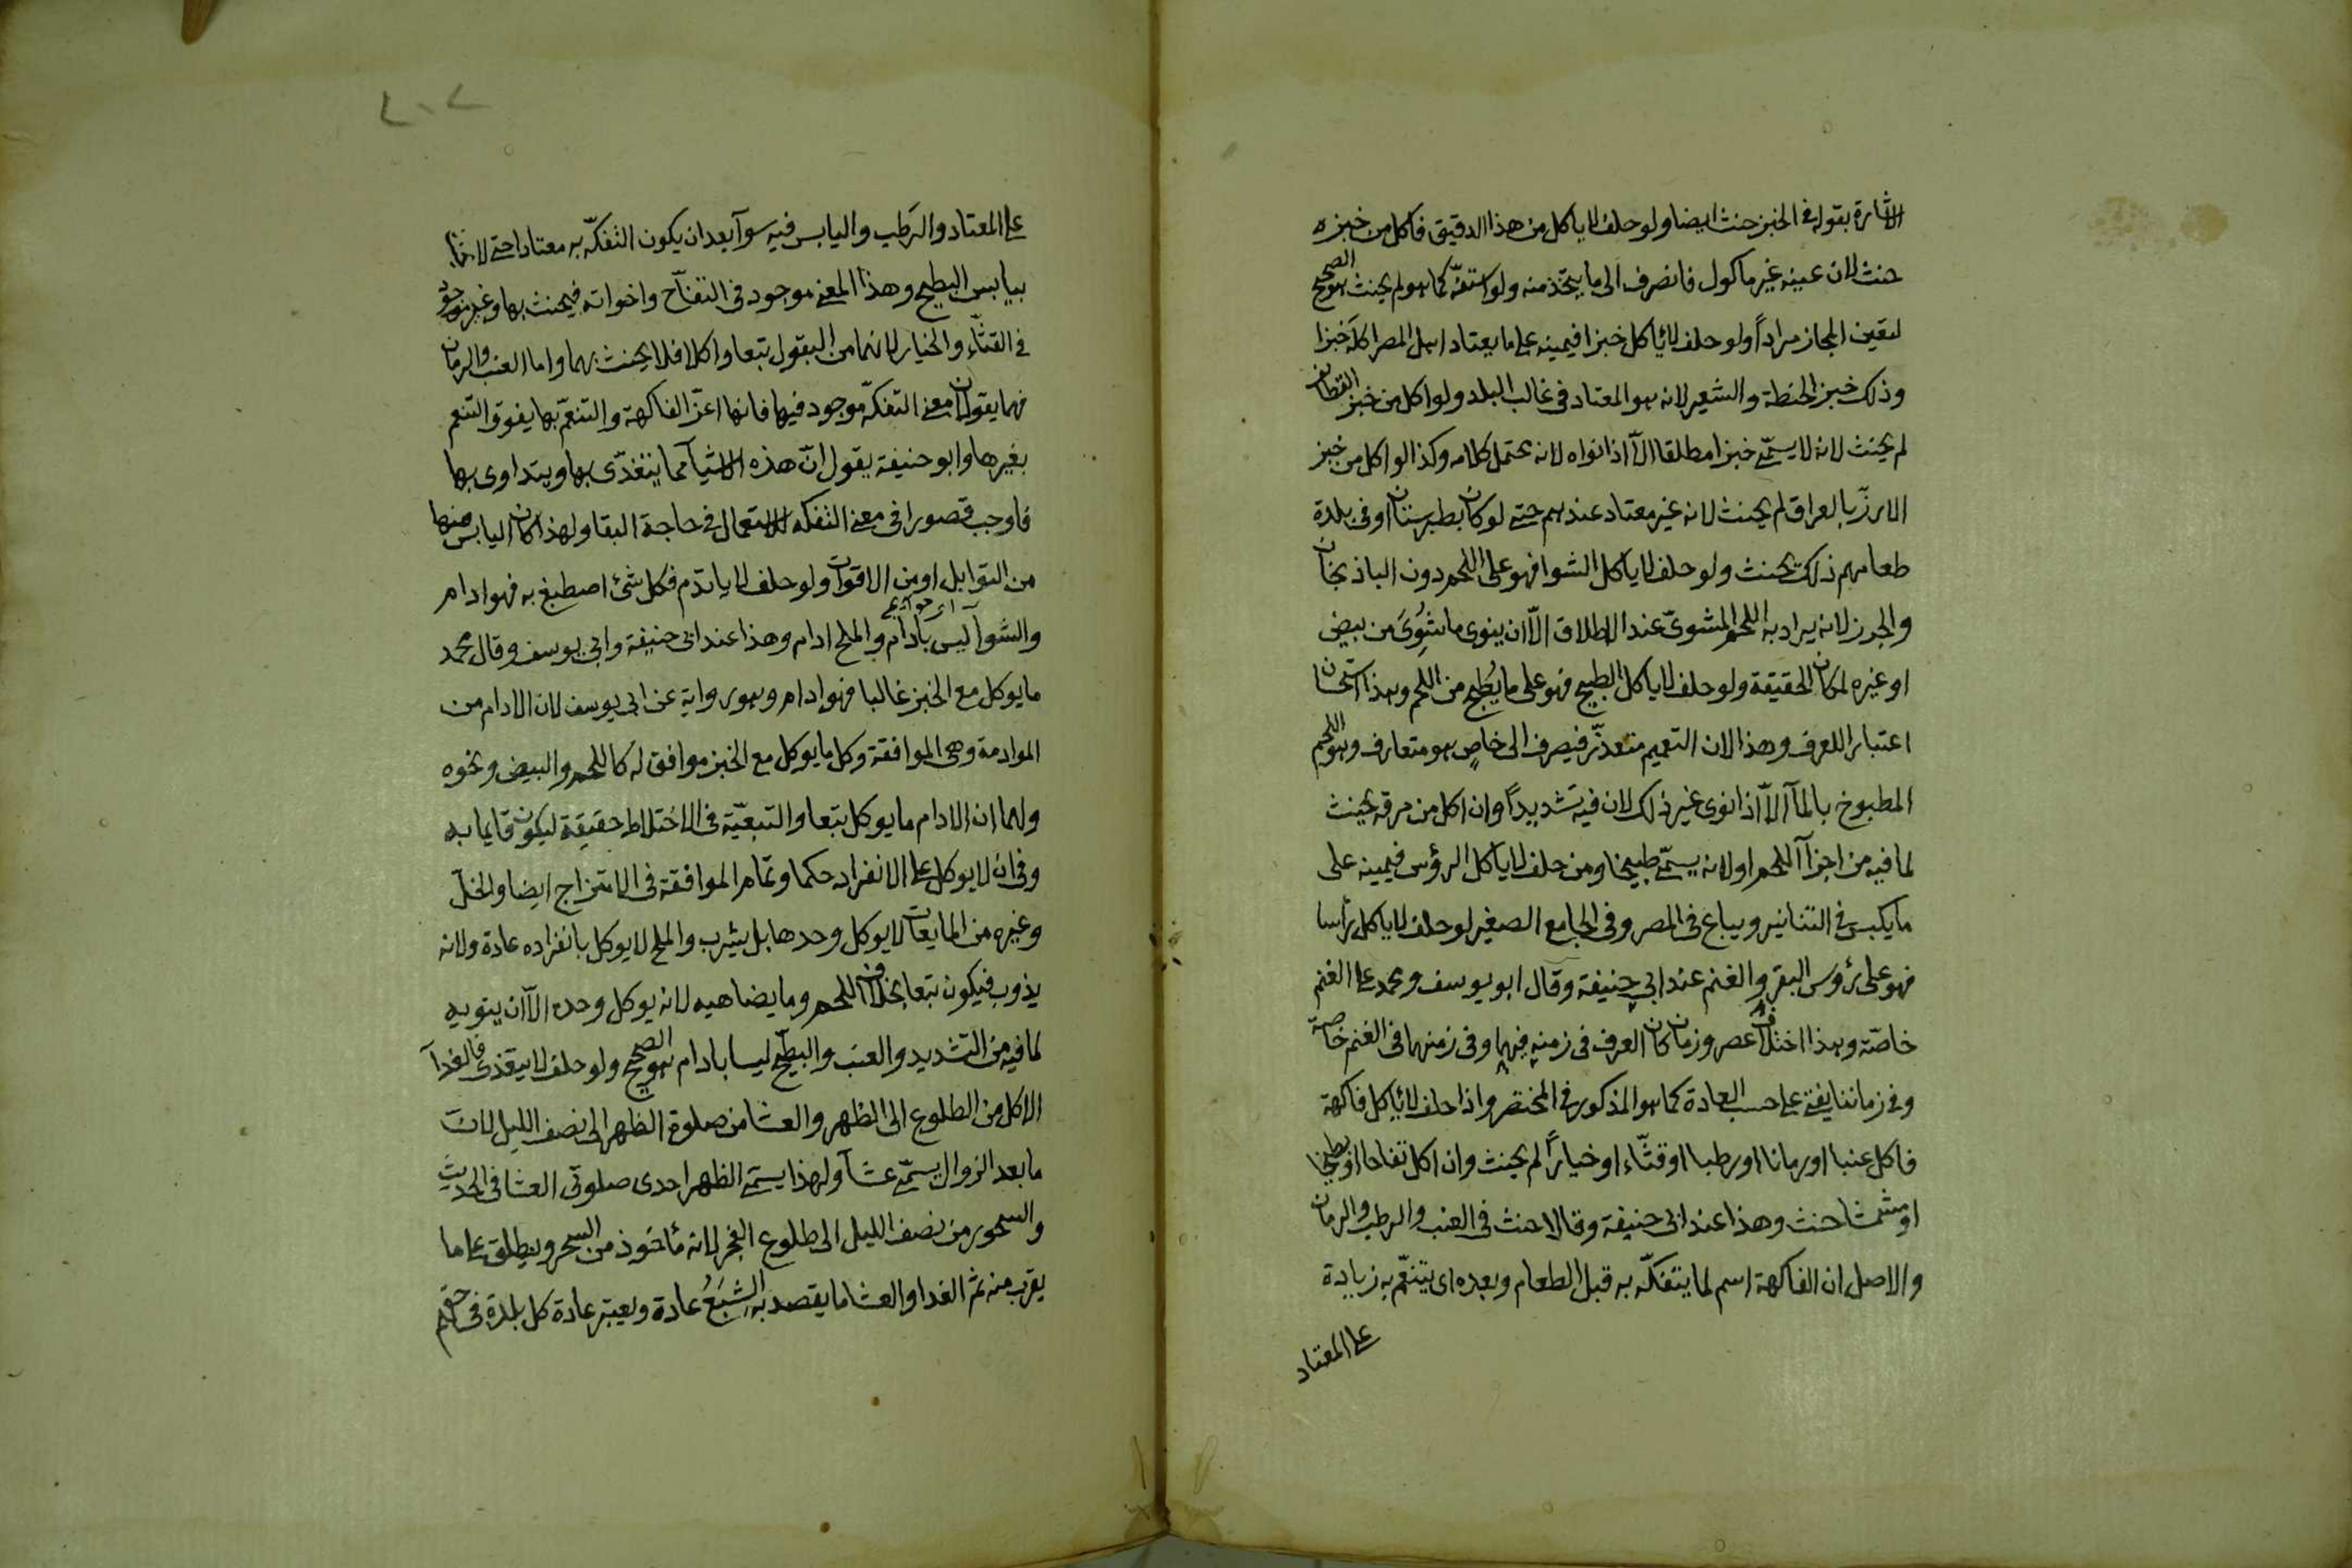 الاشارة بقوله في الخبز حنث ايضا ولو حلف لا ياكل من هذا الدقيق فاكل من خبزه
حنث لان عينه غير ماكول فانصرف الى ما يتخذ منه ولو استفّه كما هو لم يحنث هو الصحيح
لتعين المجاز مراداً ولو حلف لا ياكل خبزا فيمينه على ما يعتاد اهل المصر اكله خبزا
وذلك خبز الحنطة والشعير لانه هو المعتاد في غالب البلد ولو اكل من خبز القطائف
لم يحنث لانه لا يسمّى خبزا مطلقا الّا اذا نواه لانه محتمل كلامه وكذا لو اكل من خبز
الارزّ بالعراق لم يحنث لانه غير معتاد عندهم حتى لو كان بطبرستان او في بلدة
طعامهم ذلك يحنث ولو حلف لا ياكل الشوا فهو على اللحم دون الباذنجان
والجزر لانه يراد به اللحم المشويّ عند الاطلاق الّا ان ينوى ما يشوى من بيض
او غيره لمكان الحقيقة ولو حلف لا ياكل الطبيخ فهو على ما يُطبخ من اللحم وهذا استحسان
اعتبارا للعرف وهذا لان التعميم متعذّر فيصرف الى خاصٍ هو متعارف وهو اللحم
المطبوخ بالمآ الّا اذا نوى غير ذلك لان فيه تشديداً وان اكل من مرقه يحنث
لما فيه من اجزآ اللحم او لانه يسمّى طبيخا ومن حلف لا ياكل الرؤس فيمينه على
ما يكبس في التنانير ويباع في المصر وفي الجامع الصغير لو حلف لا ياكل راسا
فهو على رؤوس البقر والغنم عند ابي حنيفة وقال ابو يوسف ومحمد على الغنم
خاصّة وهذا اختلاف عصر وزمان كان العرف في زمنه فيهما وفي زمنهما في الغنم خاصة
وفي زماننا يفتى على حسب العادة كما هو المذكور في المختصر واذا حلف لا ياكل فاكهة
فاكل عنبا او رمانا او رطبا او قثّاء او خياراً لم يحنث وان اكل تفاحا او بطيخا
او مشمشا حنث وهذا عند ابى حنيفة وقالا حنث في العنب والرطب والرمان
والاصل ان الفاكهة اسم لما يتفكّه به قبل الطعام وبعده اى يتنعّم به زيادة
على المعتاد
على المعتاد والرَطب واليابس فيه سوآ بعد ان يكون التفكّه به معتادا حتى لا يحنث
بيابس البطيخ وهذا المعنى موجود في التفّاح واخواته فيحنث بها وغير موجود
في القثّاء والخيار لانهما من البقول بيعا واكلا فلا يحنث بهما واما العنب والرمان
فهما يقولان معنى التفكّه موجود فيها فانها اعزّ الفاكهة والتنعّم بها يفوق التنعم
بغيرها وابو حنيفة يقول انّ هذه الاشيآ مما يتغذّى بها ويتداوى بها
فاوجب قصورا في معنى التفكه للاستعمال في حاجة البقا ولهذا كان اليابس منها
من التوابل او من الاقوات ولو حلف لا ياتدم فكل شئ اصطبغ به فهو ادام
والشوآ ليس بادام والملح ادام وهذا عند ابى حنيفة وابي يوسف وقال محمد
ما يوكل مع الخبز غالبا فهو ادام وهو رواية عن ابى يوسف لان الادام من
الموادمة وهى الموافقة وكل ما يوكل مع الخبز موافق له كاللحم والبيض ونحوه
ولهما ان الادام ما يوكل تبعا والتبعيّة في الاختلاط حقيقة ليكون قايما به
وفي ان لا يوكل على الانفراد حكما وتمام الموافقة في الامتزاج ايضا والخلّ
وغيره من المايعات لا يوكل وحدها بل يشرب والملح لا يوكل بانفراده عادة ولانه
يذوب فيكون تبعا بخلاف اللحم وما يضاهيه لانه يوكل وحده الّا ان ينويه
لما فيه من التشديد والعنب والبطّيخ ليسا بادام هو الصحيح ولو حلف لا يتغذى فالغدآ
الاكل من الطلوع الى الظهر والعشا من صلوة الظهر الى نصف الليل لان
ما بعد الزوال يسمّى عشآ ولهذا يسمّى الظهر احدى صلوتى العشا في الحديث
والسحور من نصف الليل الى طلوع الفجر لانه مأخوذ من السحر ويطلق على ما
يقرب منه ثم الغدا والعشا ما يقصد به الشِبَعُ عادة ويعتبر عادة كل بلدة في حقهم